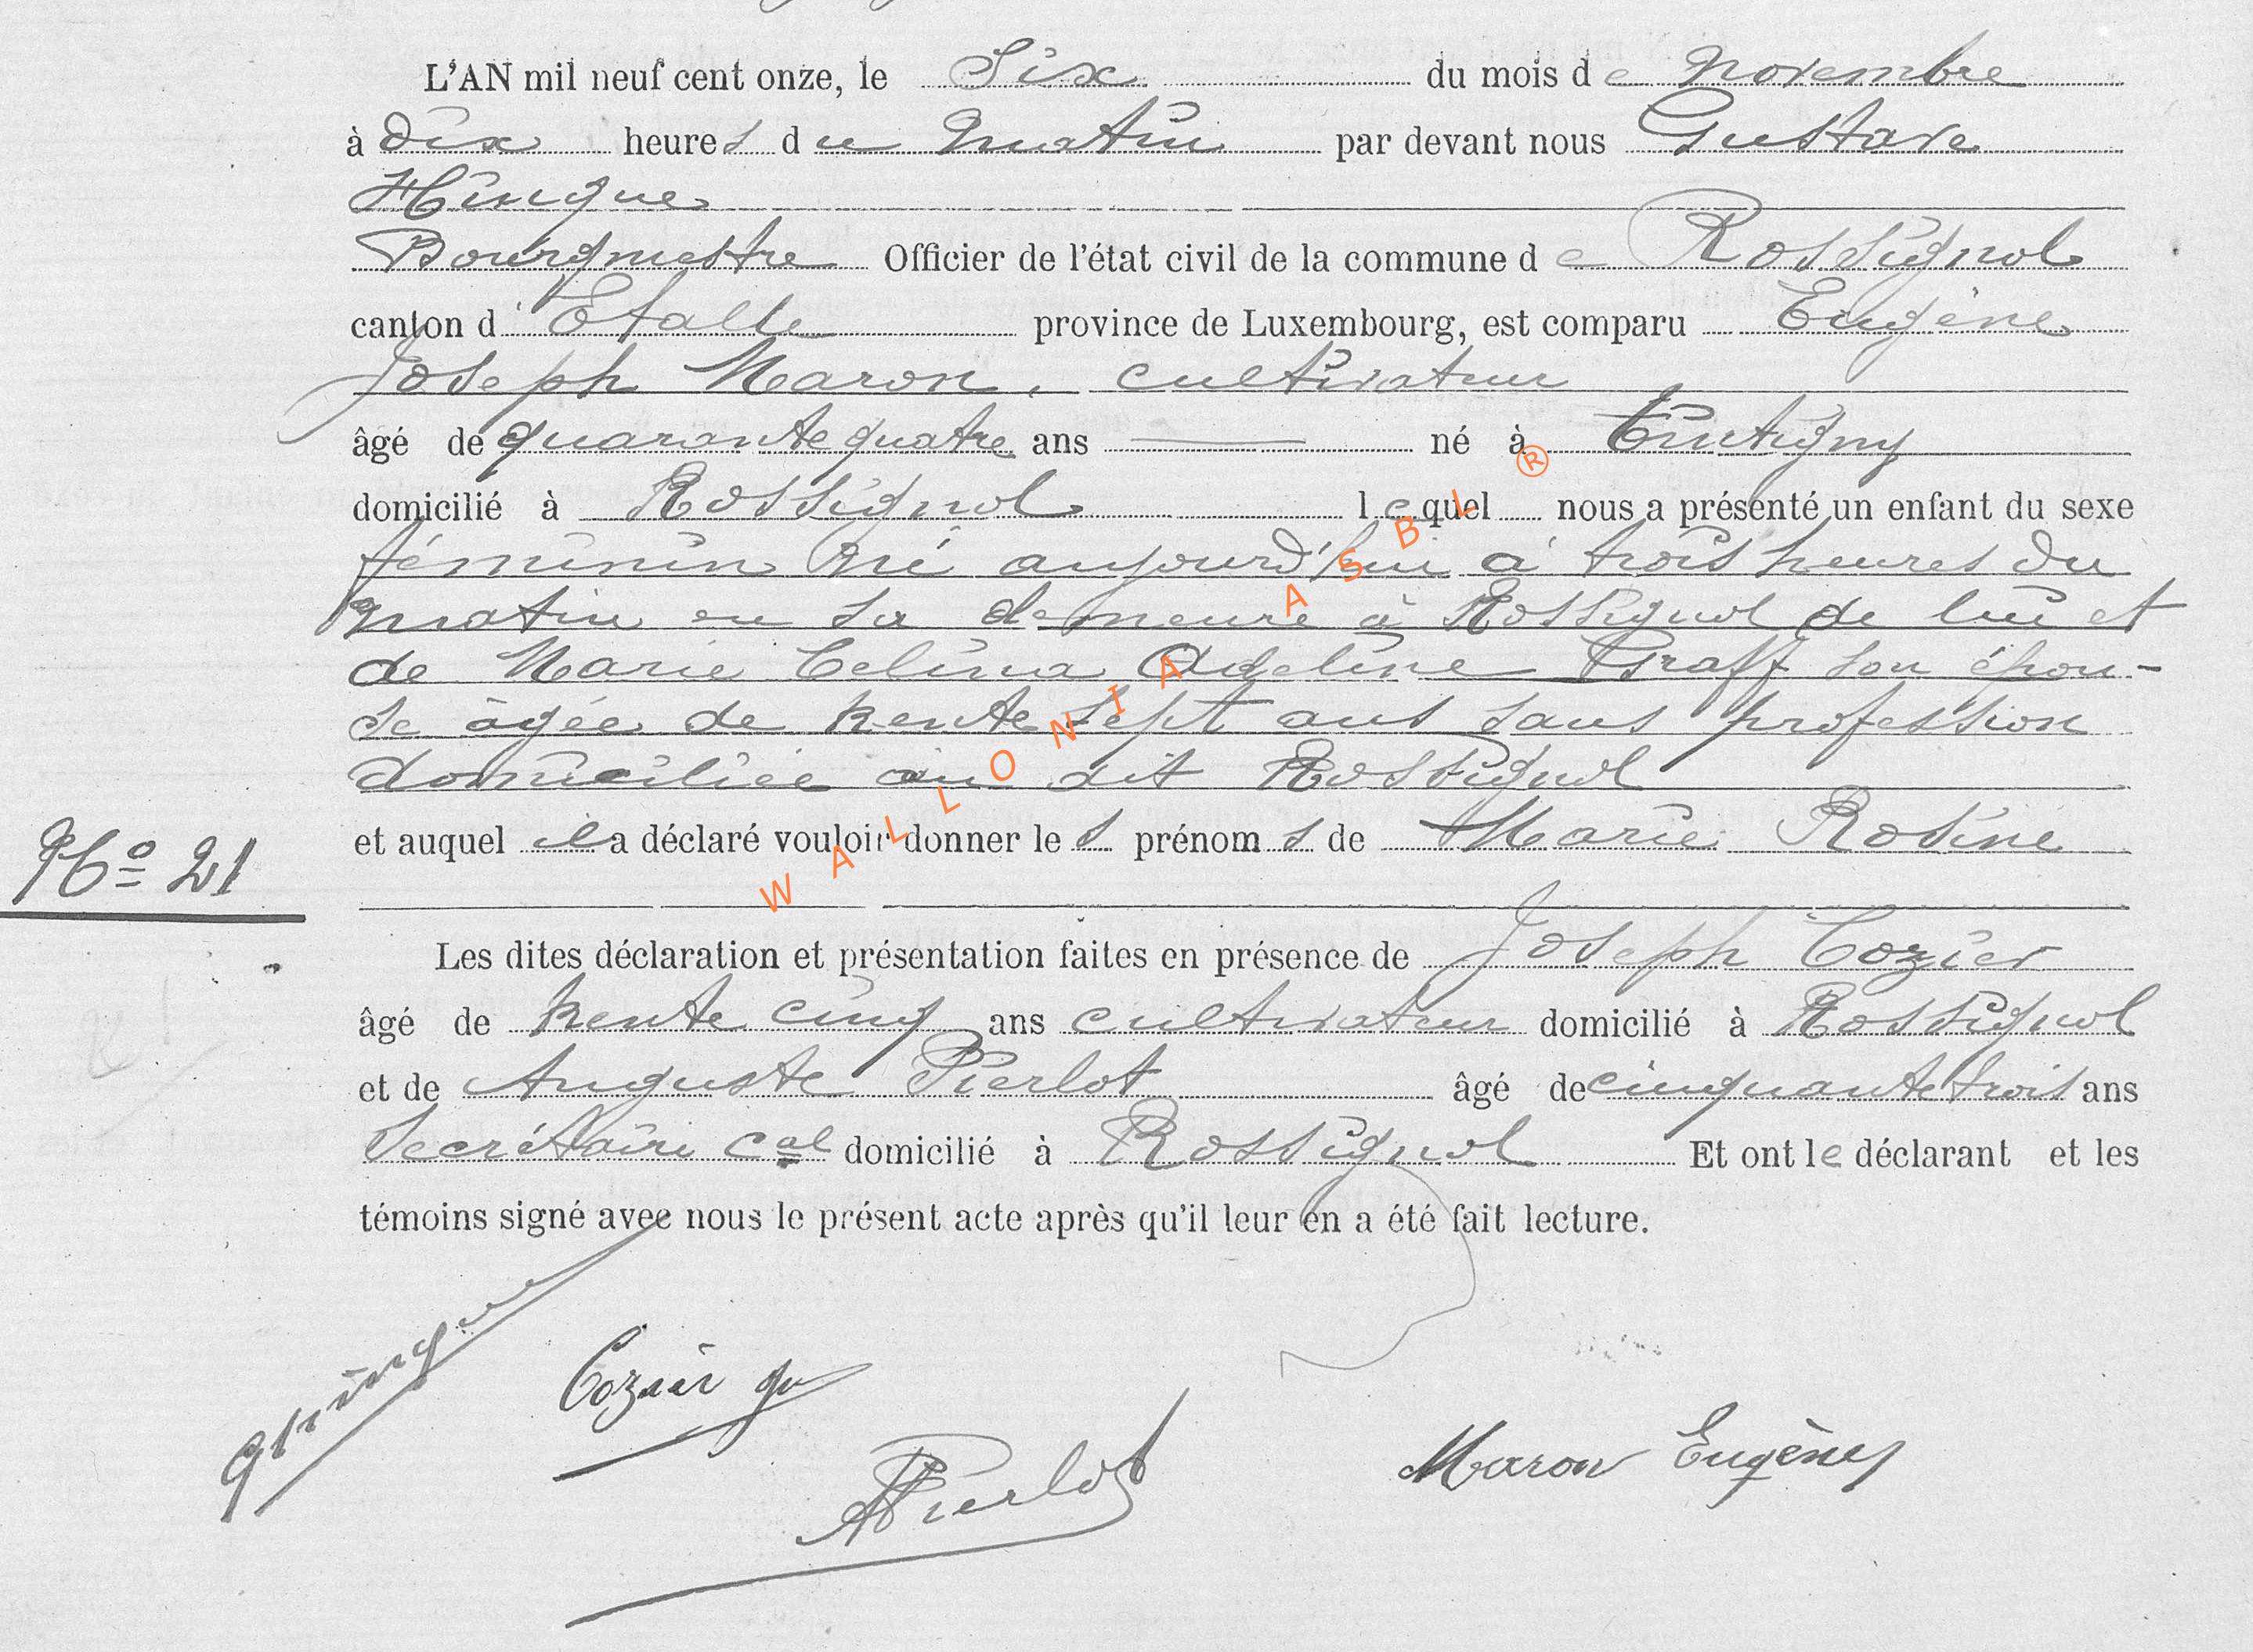 L'AN mil neuf cent onze, le Six du mois de Novembre
à dix heures du Matin par devant nous Gustave
Hinque
Bourgmestre Officier de l'état civil de la commune de Rossignol
canton d'Etalle province de Luxembourg, est comparu Eugène
Joseph Maron, cultivateur
âgé de quarante quatre ans né à Tintigny
domicilié à Rossignol lequel nous a présenté un enfant du sexe
féminin né aujourd'hui à trois heures du
matin en sa demeure à Rossignol de lui et
de Marie Celina Adeline Graff son épou-
se âgée de trente sept ans sans profession
domiciliée au dit Rossignol
et auquel il a déclaré vouloir donner les prénoms de Marie Rosine
No 21
Les dites déclaration et présentation faites en présence de Joseph Cozier
âgé de trente cinq ans cultivateur domicilié à Rossignol
et de Auguste Pierlot âgé de cinquante trois ans
Secrétaire cal domicilié à Rossignol Et ont le déclarant et les
témoins signé avec nous le présent acte après qu'il leur en a été fait lecture.
Cozier
APierlot
Maron Eugène
WALLONIA ASBL ®